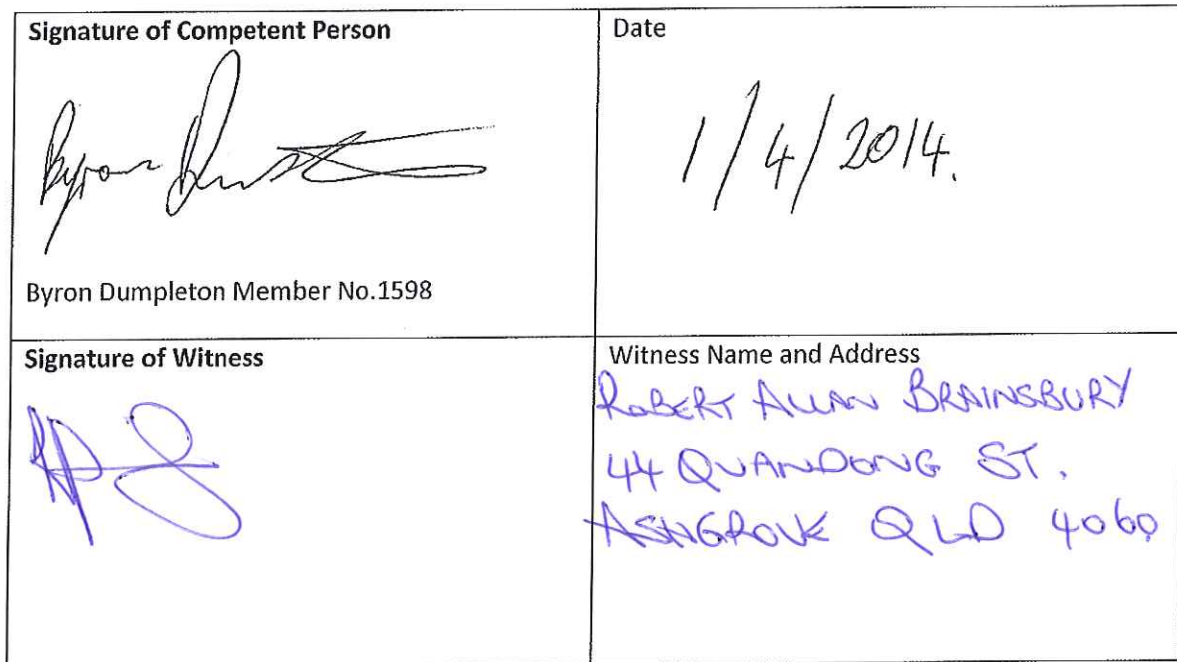 Signature of Competent Person
Date
Byron
1/4/2014.
Byron Dumpleton Member No.1598
Signature of Witness
Witness Name and Address
ROBERT ALLAN BRAINSBURY
44 QUANDONG ST.
ASHGROVE QLD 4060